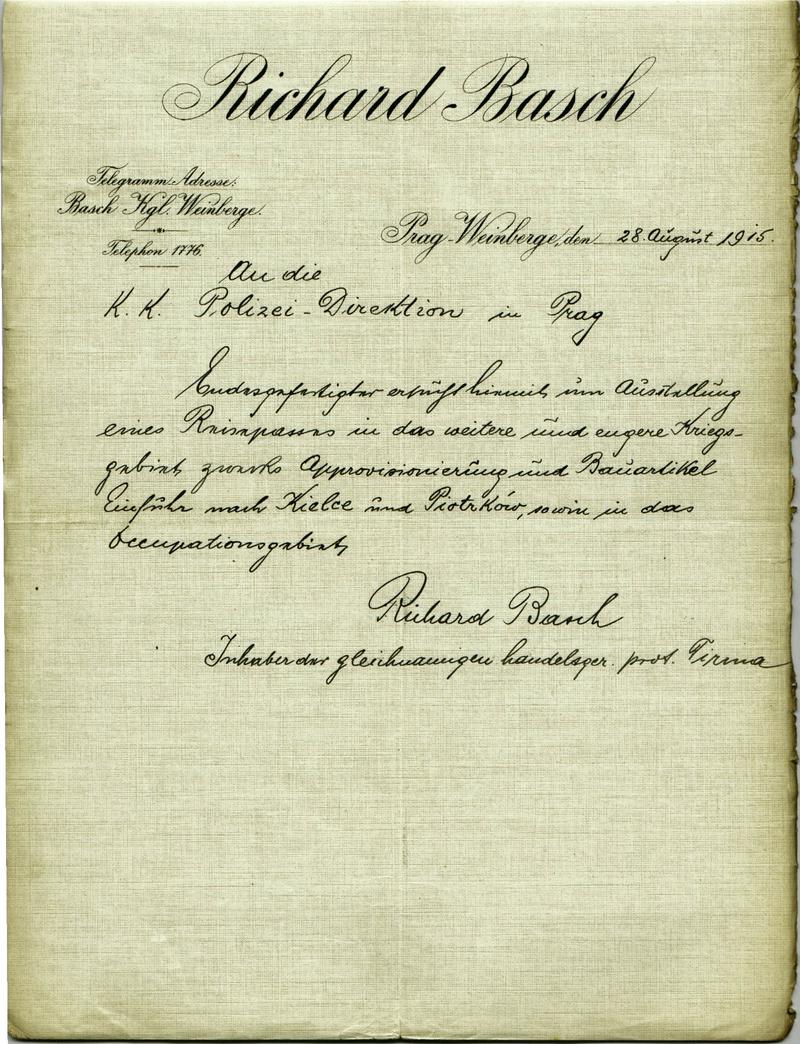 Richard Basch
Telegramm-Adresse:
Basch Kgl. Weinberge.
Telephon 1776.
Prag-Weinberge, den 28. August 1915.
An die
K. K. Polizei-Direktion in Prag
Endesgefertigter ersucht hiemit um Ausstellung
eines Reisepasses in das weitere und engere Kriegs-
gebiet zwecks Approvisionierung und Bauartikel
Einfuhr nach Kielce und Piotrków, sowie in das
Occupationsgebiet
Richard Basch
Inhaber der gleichnamigen handelsger. prot. Firma